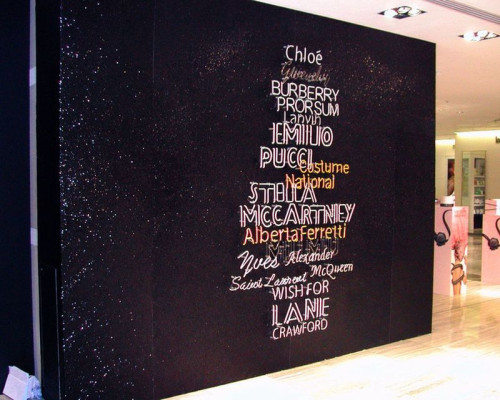 Chloé
Givenchy
BURBERRY
PRORSUM
Lanvin
EMILIO
PUCCI
Costume
National
STELLA
MCCARTNEY
Alberta Ferretti
MIU MIU
Yves Alexander
Saint Laurent McQueen
WISH FOR
LANE
CRAWFORD